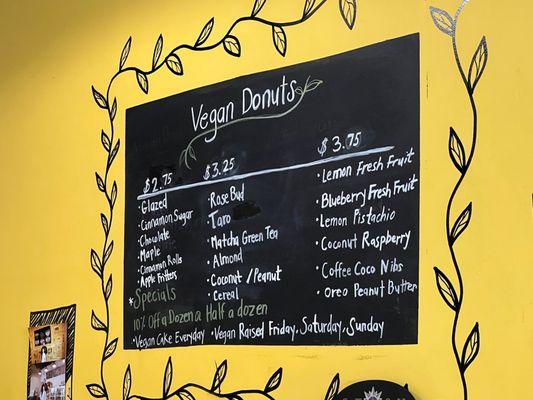 Vegan Donuts
$2.75
Glazed
Cinnamon Sugar
Chocolate
Maple
Cinnamon Rolls
Apple Fritters
$3.25
Rose Bud
Taro
Matcha Green Tea
Almond
Coconut / Peanut
Cereal
$3.75
Lemon Fresh Fruit
Blueberry Fresh Fruit
Lemon Pistachio
Coconut Raspberry
Coffee Coco Nibs
Oreo Peanut Butter
*Specials
10% Off a Dozen a Half a dozen
•Vegan Cake Everyday •Vegan Raised Friday, Saturday, Sunday